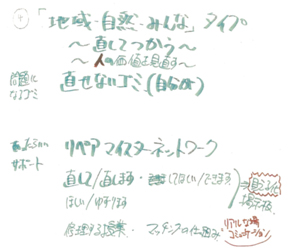 「地域・自然・みんな」タイプ
～直してつかう～
～人の価値を見直す～
問題になるゴミ 直せないゴミ(自らが)
サポート リペアマイスターネットワーク
直して/直します・してほしい/できます
ほしい/ゆずります
修理する授業 マッチングの仕組み
掲示板
リアルな場
コミュニケーション